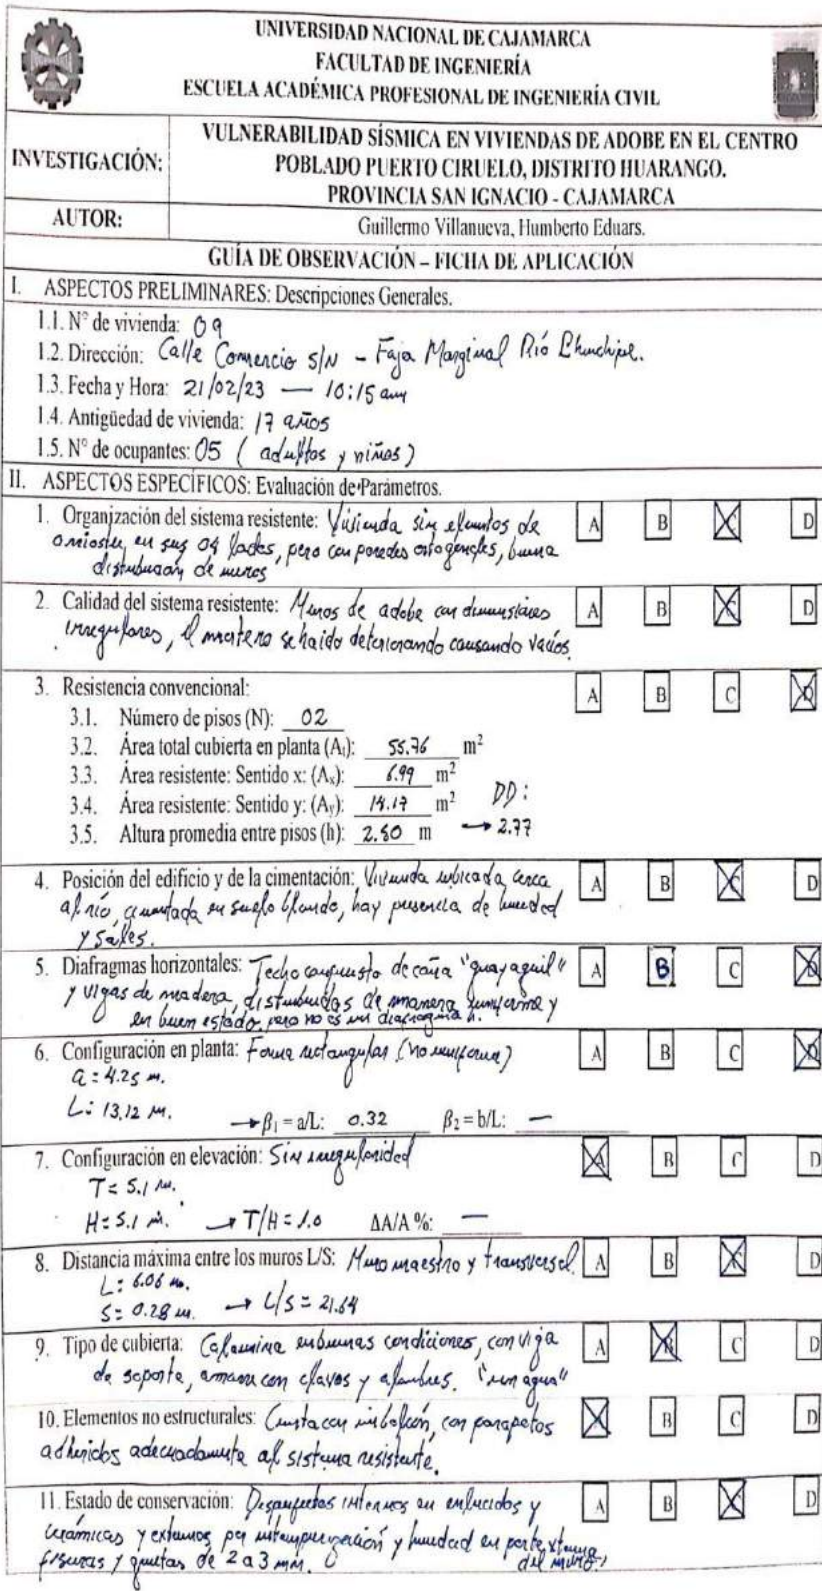 UNIVERSIDAD NACIONAL DE CAJAMARCA
FACULTAD DE INGENIERÍA
ESCUELA ACADÉMICA PROFESIONAL DE INGENIERÍA CIVIL
INVESTIGACIÓN:
VULNERABILIDAD SÍSMICA EN VIVIENDAS DE ADOBE EN EL CENTRO
POBLADO PUERTO CIRUELO, DISTRITO HUARANGO.
PROVINCIA SAN IGNACIO - CAJAMARCA
AUTOR: Guillermo Villanueva, Humberto Eduars.
GUÍA DE OBSERVACIÓN – FICHA DE APLICACIÓN
I. ASPECTOS PRELIMINARES: Descripciones Generales.
1.1. N° de vivienda: 09
1.2. Dirección: Calle Comercio S/N - Faja Marginal Río Chinchipe.
1.3. Fecha y Hora: 21/02/23 — 10:15 am
1.4. Antigüedad de vivienda: 17 años
1.5. N° de ocupantes: 05 (adultos y niños)
II. ASPECTOS ESPECÍFICOS: Evaluación de Parámetros.
1. Organización del sistema resistente: Vivienda sin elementos de A B C D
arriostre en sus 04 lados, pero con paredes ortogonales, buena
distribución de muros
2. Calidad del sistema resistente: Muros de adobe con dimensiones A B C D
irregulares, el mortero se ha ido deteriorando causando vacíos.
3. Resistencia convencional: A B C D
3.1. Número de pisos (N): 02
3.2. Área total cubierta en planta (At): 55.76 m²
3.3. Área resistente: Sentido x: (Ax): 6.99 m²
3.4. Área resistente: Sentido y: (Ay): 14.17 m² DD:
3.5. Altura promedia entre pisos (h): 2.50 m → 2.77
4. Posición del edificio y de la cimentación: Vivienda ubicada cerca A B C D
al río, cimentada en suelo blando, hay presencia de humedad
y sales.
5. Diafragmas horizontales: Techo compuesto de caña "guayaquil" A B C D
y vigas de madera, distribuidas de manera uniforme y
en buen estado, pero no es un diafragma h.
6. Configuración en planta: Forma rectangular (no uniforme) A B C D
a = 4.25 m.
L: 13.12 m.
→ β1 = a/L: 0.32 β2 = b/L: —
7. Configuración en elevación: Sin irregularidad A B C D
T = 5.1 m.
H = 5.1 m. → T/H = 1.0 ΔA/A %: —
8. Distancia máxima entre los muros L/S: Muro maestro y transversal. A B C D
L: 6.06 m.
S = 0.28 m. → L/S = 21.64
9. Tipo de cubierta: Calamina en buenas condiciones, con viga A B C D
de soporte, amarre con clavos y alambres. "un agua"
10. Elementos no estructurales: Cuenta con un balcón, con parapetos A B C D
adheridos adecuadamente al sistema resistente.
11. Estado de conservación: Desperfectos internos en enlucidos y A B C D
cerámicas y externos por intemperización y humedad en parte externa
fisuras y grietas de 2 a 3 mm. del muro.